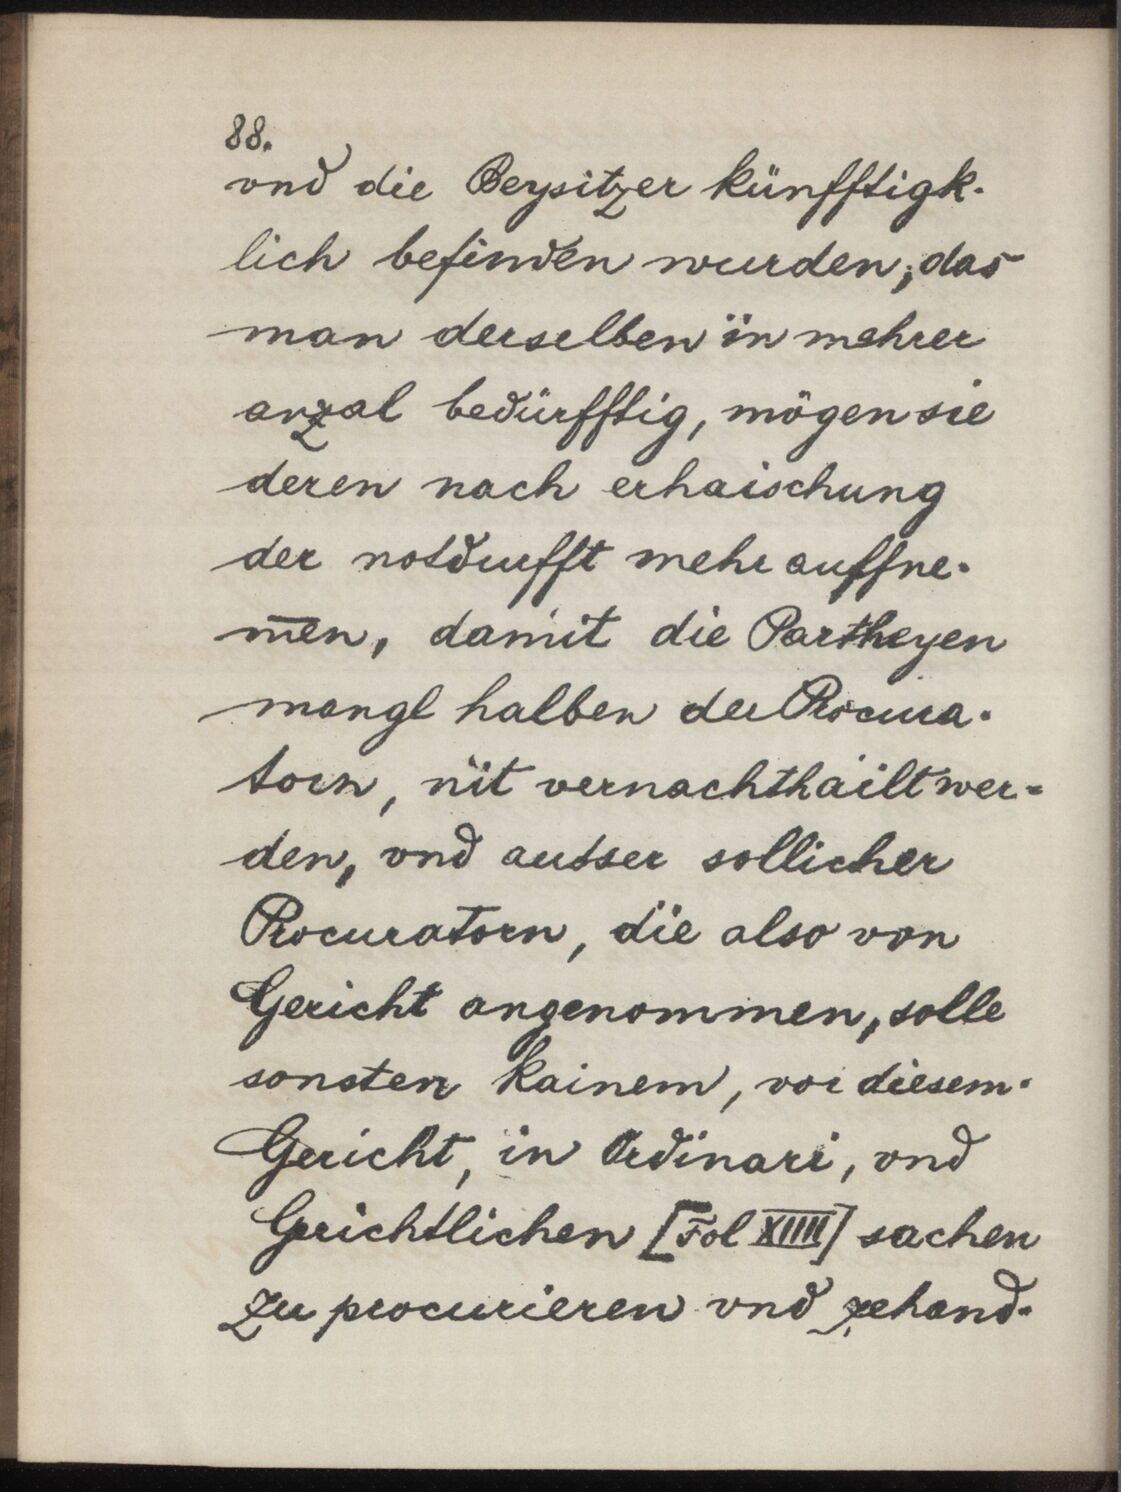 88.
vnd die Beysitzer künfftigk-
lich befinden wurden, das
man derselben in mehrer
anzal bedürfftig, mögen sie
deren nach erhaischung
der notdurfft mehr auffne-
m̅en, damit die Partheyen
mangl halben der Procura-
torn, nit vernachthailt wer-
den, vnd ausser sollicher
Procuratorn, die also von
Gericht angenommen, solle
sonsten kainem, vor diesem
Gericht, in Ordinari, vnd
Gerichtlichen [Fol XIIII] sachen
zu procurieren vnd zehand-